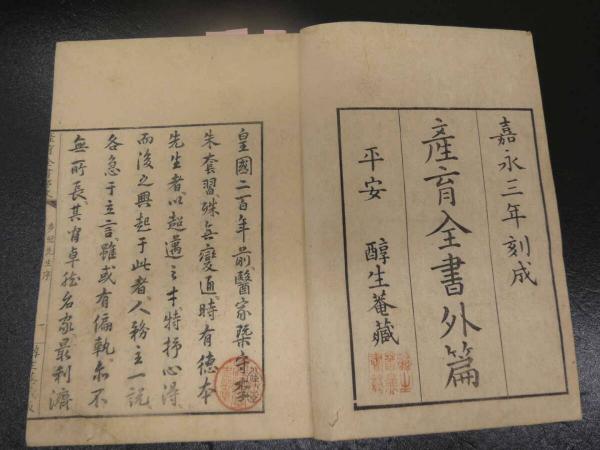 嘉永三年刻成
産育全書外篇
平安 醇生菴藏
皇國二百年前醫家槩守李
朱套習殊無變通時有德本
先生者以超邁之才特抒心得
而後之興起于此者人務立一說
各急于立言雖或有偏執亦不
無所長其有卓然名家最利濟